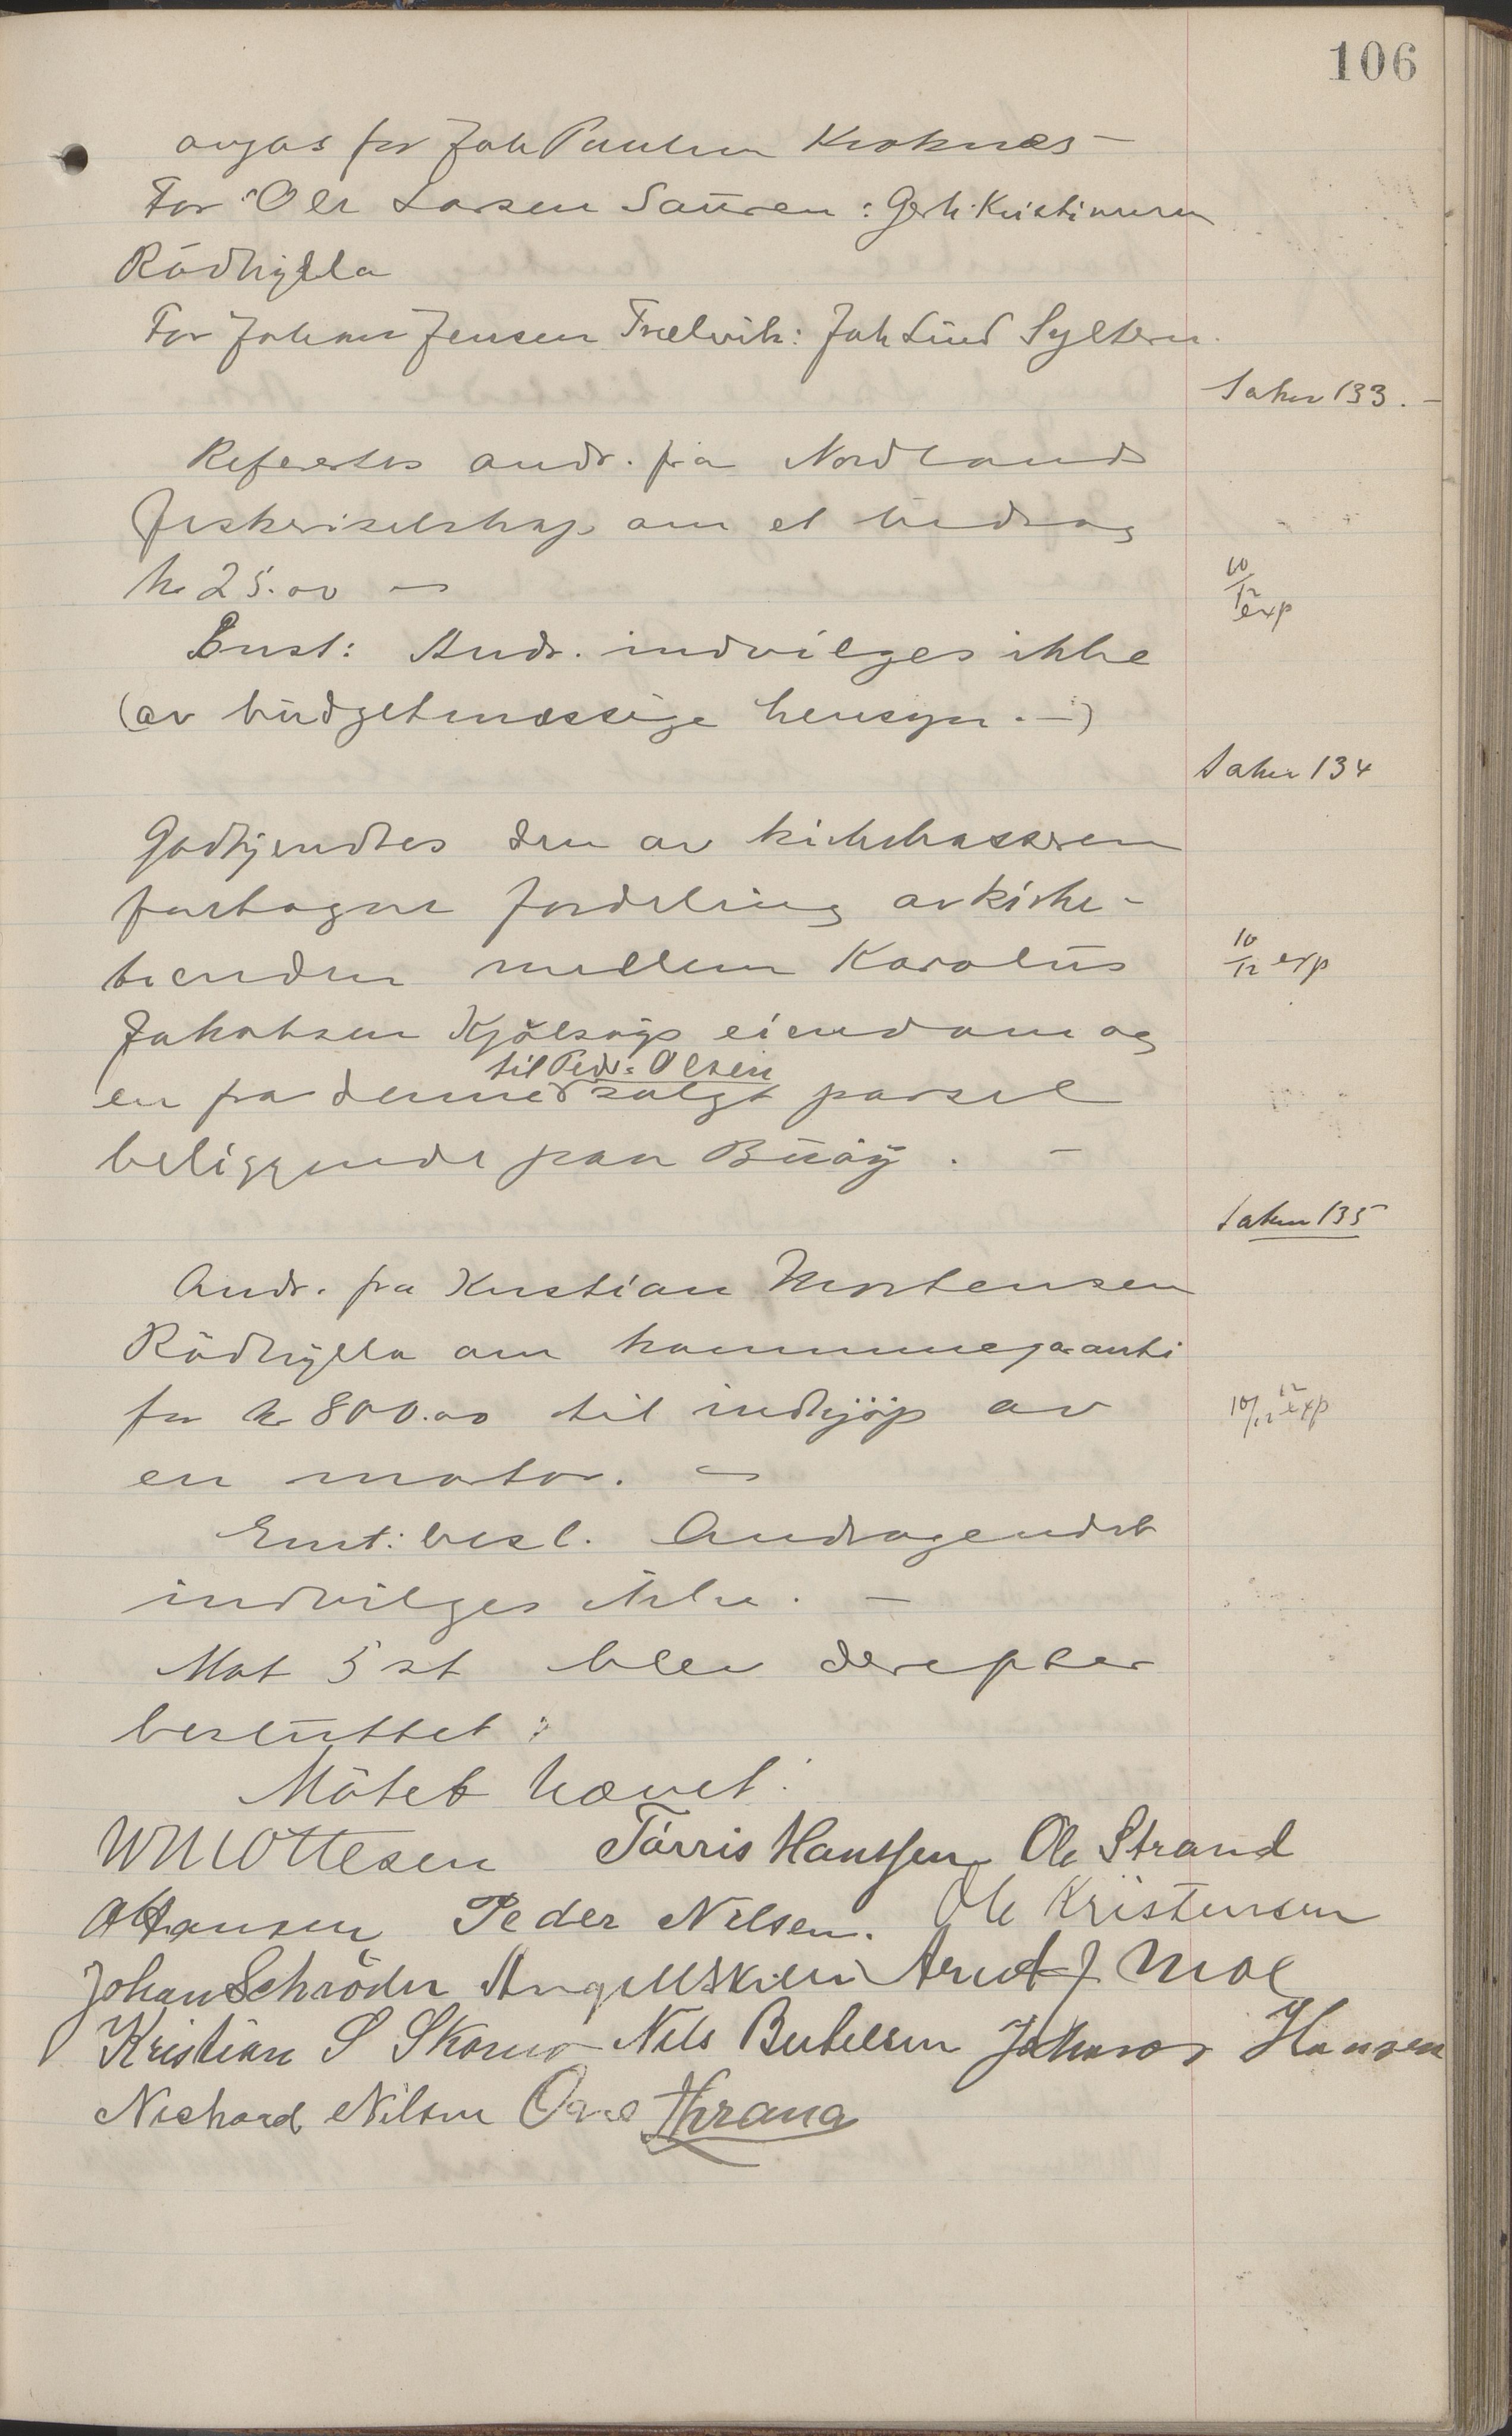 106
for Joh Paulsen Kroknes -
For Ole Larsen Sauren: Gerh. Kristiansen
Rödhylla
For Johan Jensen Trælvik: Joh Lund Sylteren
Saken 133. -
Refertes andr. fra Nordlands
fiskeriselskap om et bidrag
kr 25.00 -
10/12 exp
Enst: Andr. indvilges ikke
(av budgetmæssige hensyn. -)
Saken 134
Godkjendtes den av kirkekasseren
foretagne fordeling av kirke-
tienden mellem Karolus
10/12 exp
Jakobsen Kjölsøys eiendom og
til Peder Olsen
en fra denne solgt parsel
beliggende paa Buöy. -
Saken 135
Andr. fra Kristian Mortensen
Rödhylla om kommunegaranti
for kr 800.00 til indkjöp av
10/12 exp
en motor. -
Enst: besl. Andragendet
indvilges ikke. -
Mot 5 st blev derefter
besluttet:
Mötet hævet.
Ottesen Torris Hanssen Ole Strand
O Hansen Peder Nilsen. Ole Kristensen
Johan Schröder Angell Arnt J Moe
Kristian S Nils Bertelsen Johan Hansen
Richard Nilsen Thrana